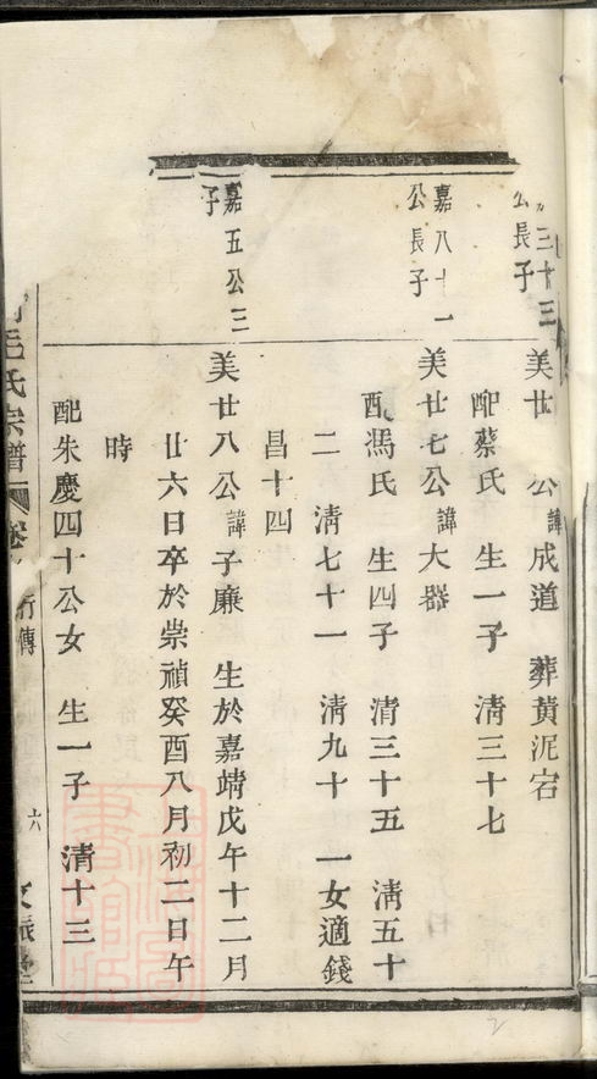 三十三
公長子
美廿 公諱成道 葬黃泥宕
配蔡氏 生一子 淸三十七
嘉八十一
公長子
美廿七公諱大器
配馮氏 生四子 淸三十五 淸五十
二 淸七十一 淸九十 一女適錢
昌十四
嘉五公三
子
美廿八公諱子廉 生於嘉靖戊午十二月
廿六日卒於崇禎癸酉八月初二日午
時
配朱慶四十公女 生一子 淸十三
毛氏宗譜 卷
行傳
六